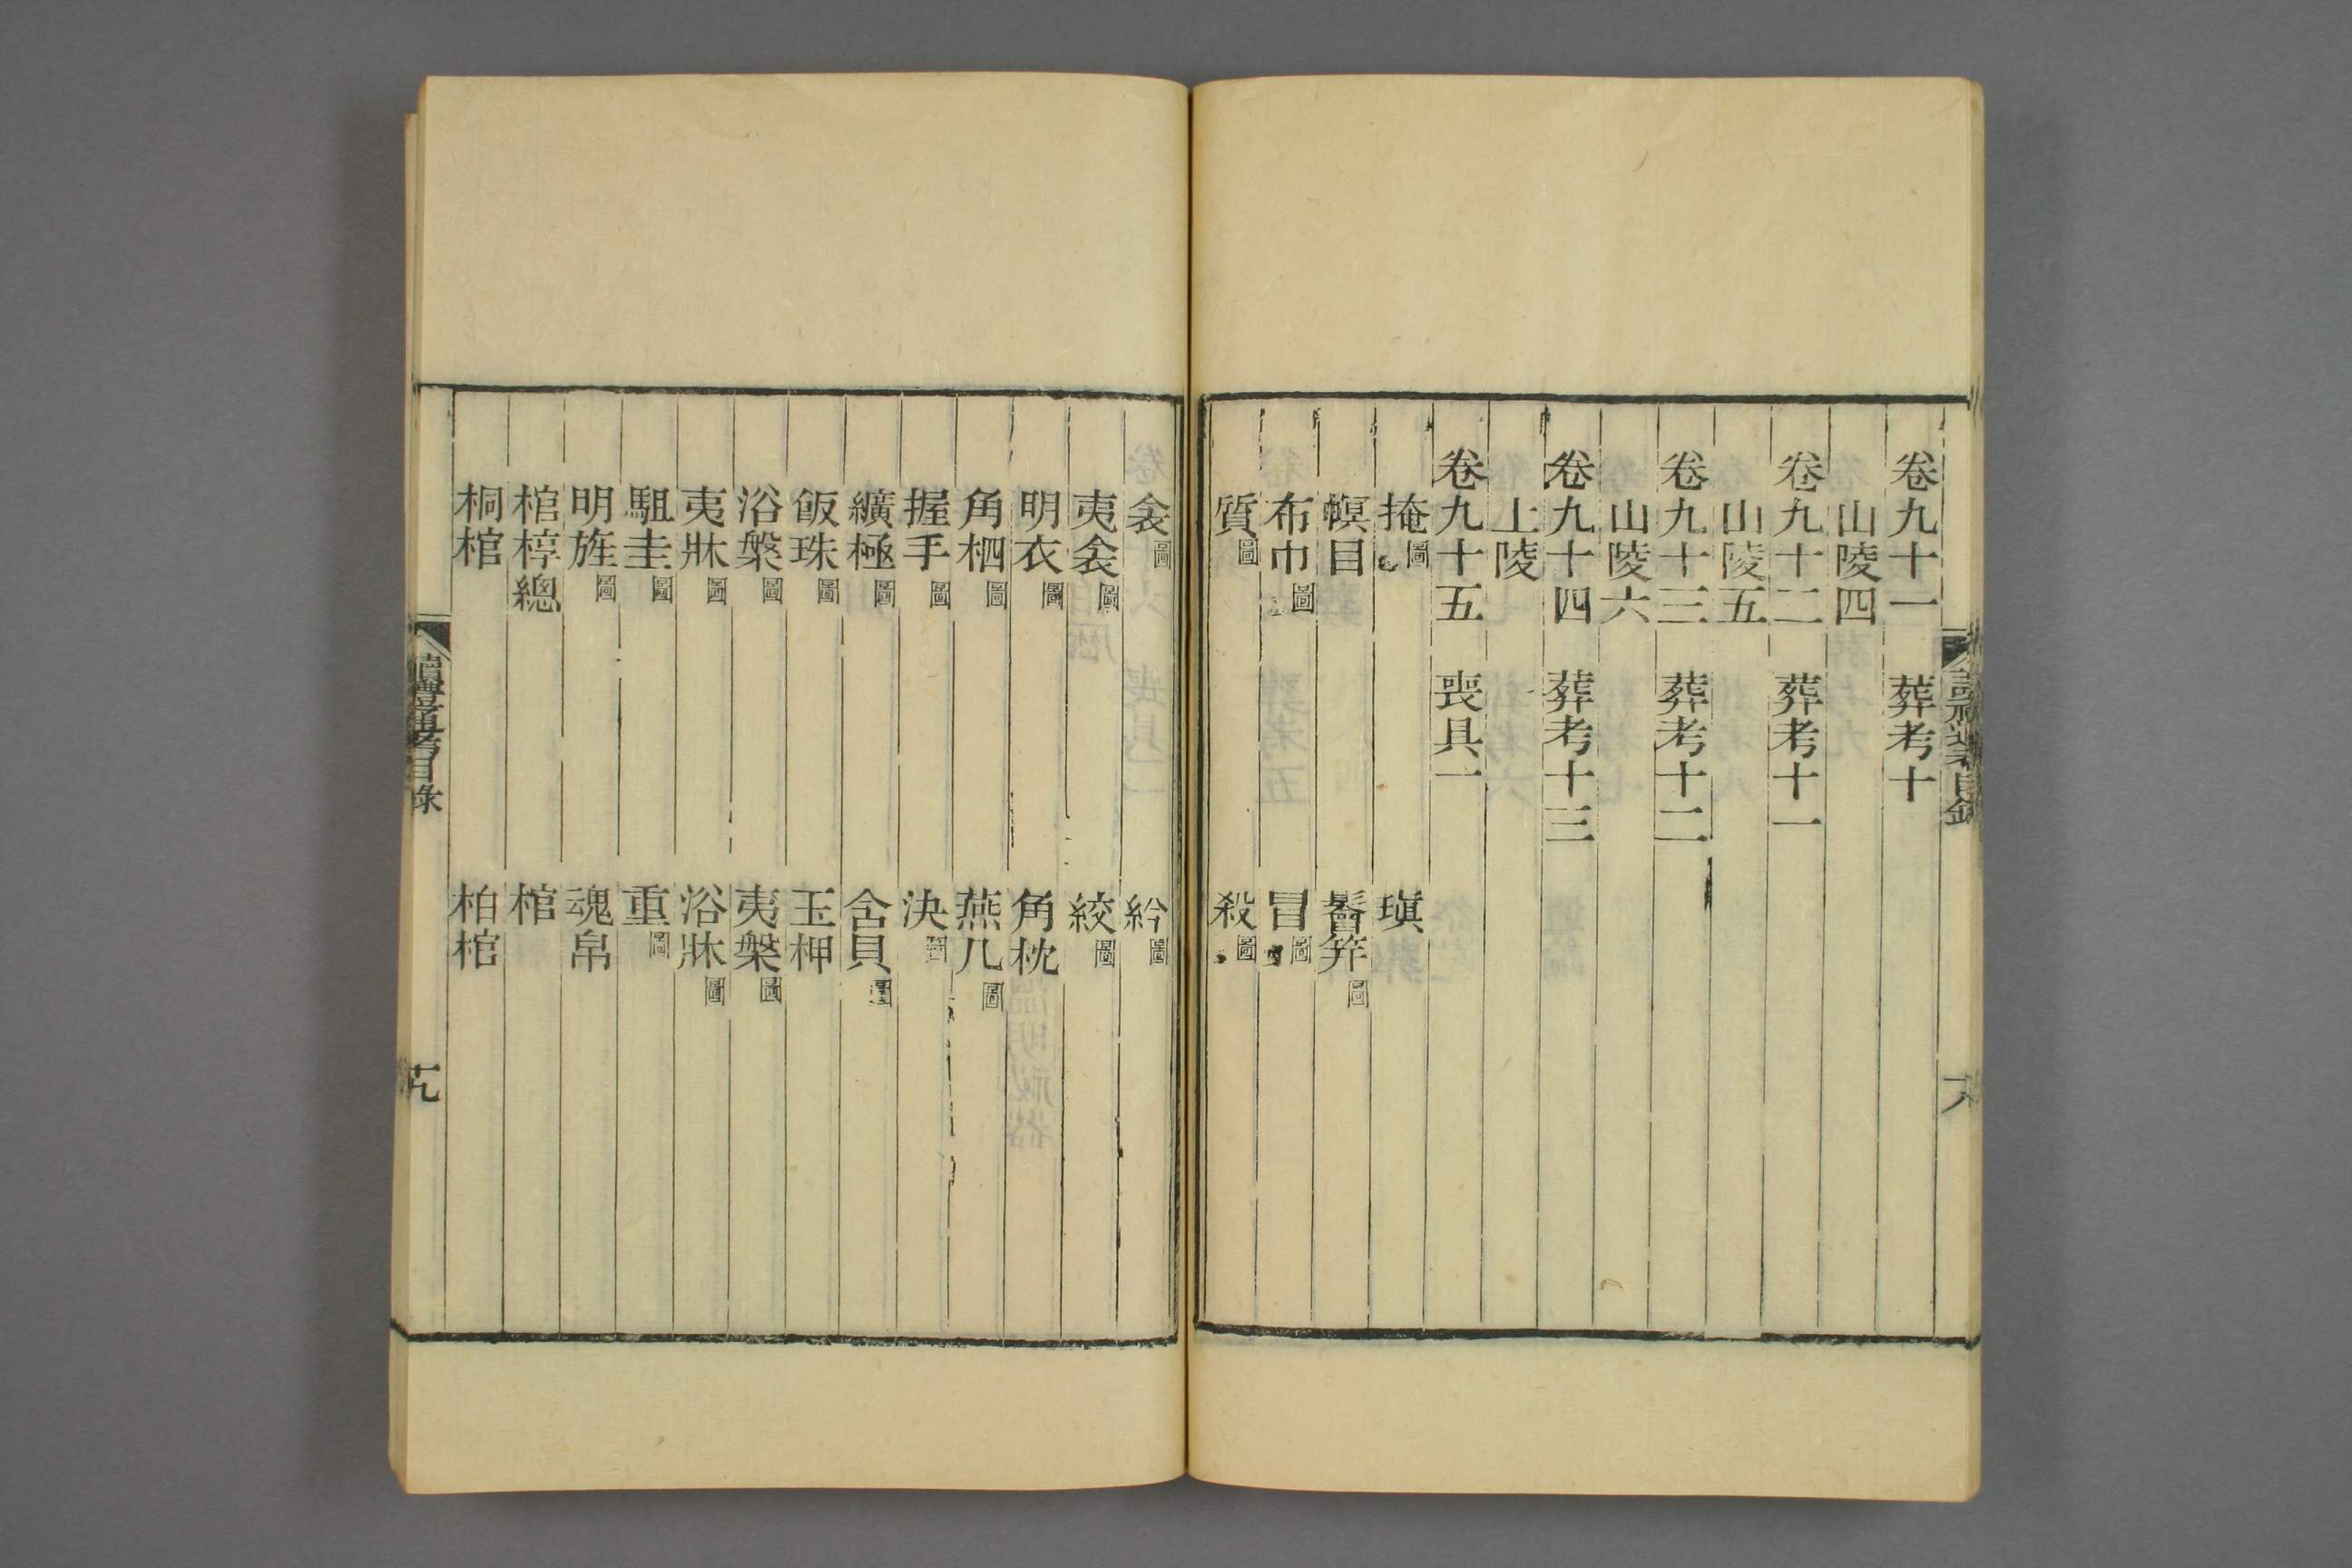 卷九十一 葬考十
山陵四
卷九十二 葬考十一
山陵五
卷九十三 葬考十二
山陵六
卷九十四 葬考十三
上陵
卷九十五 喪具一
掩圖 瑱
幎目 鬠笄圖
布巾圖 冒圖
質圖 殺圖
衾圖 紟圖
夷衾圖 絞圖
明衣圖 角枕
角柶圖 燕几圖
握手圖 決圖
纊極圖 含貝圖
飯珠圖 玉柙
浴槃圖 夷槃圖
夷牀圖 浴牀圖
駔圭圖 重圖
明旌圖 魂帛
棺椁總 棺
桐棺 柏棺
讀禮通考目錄